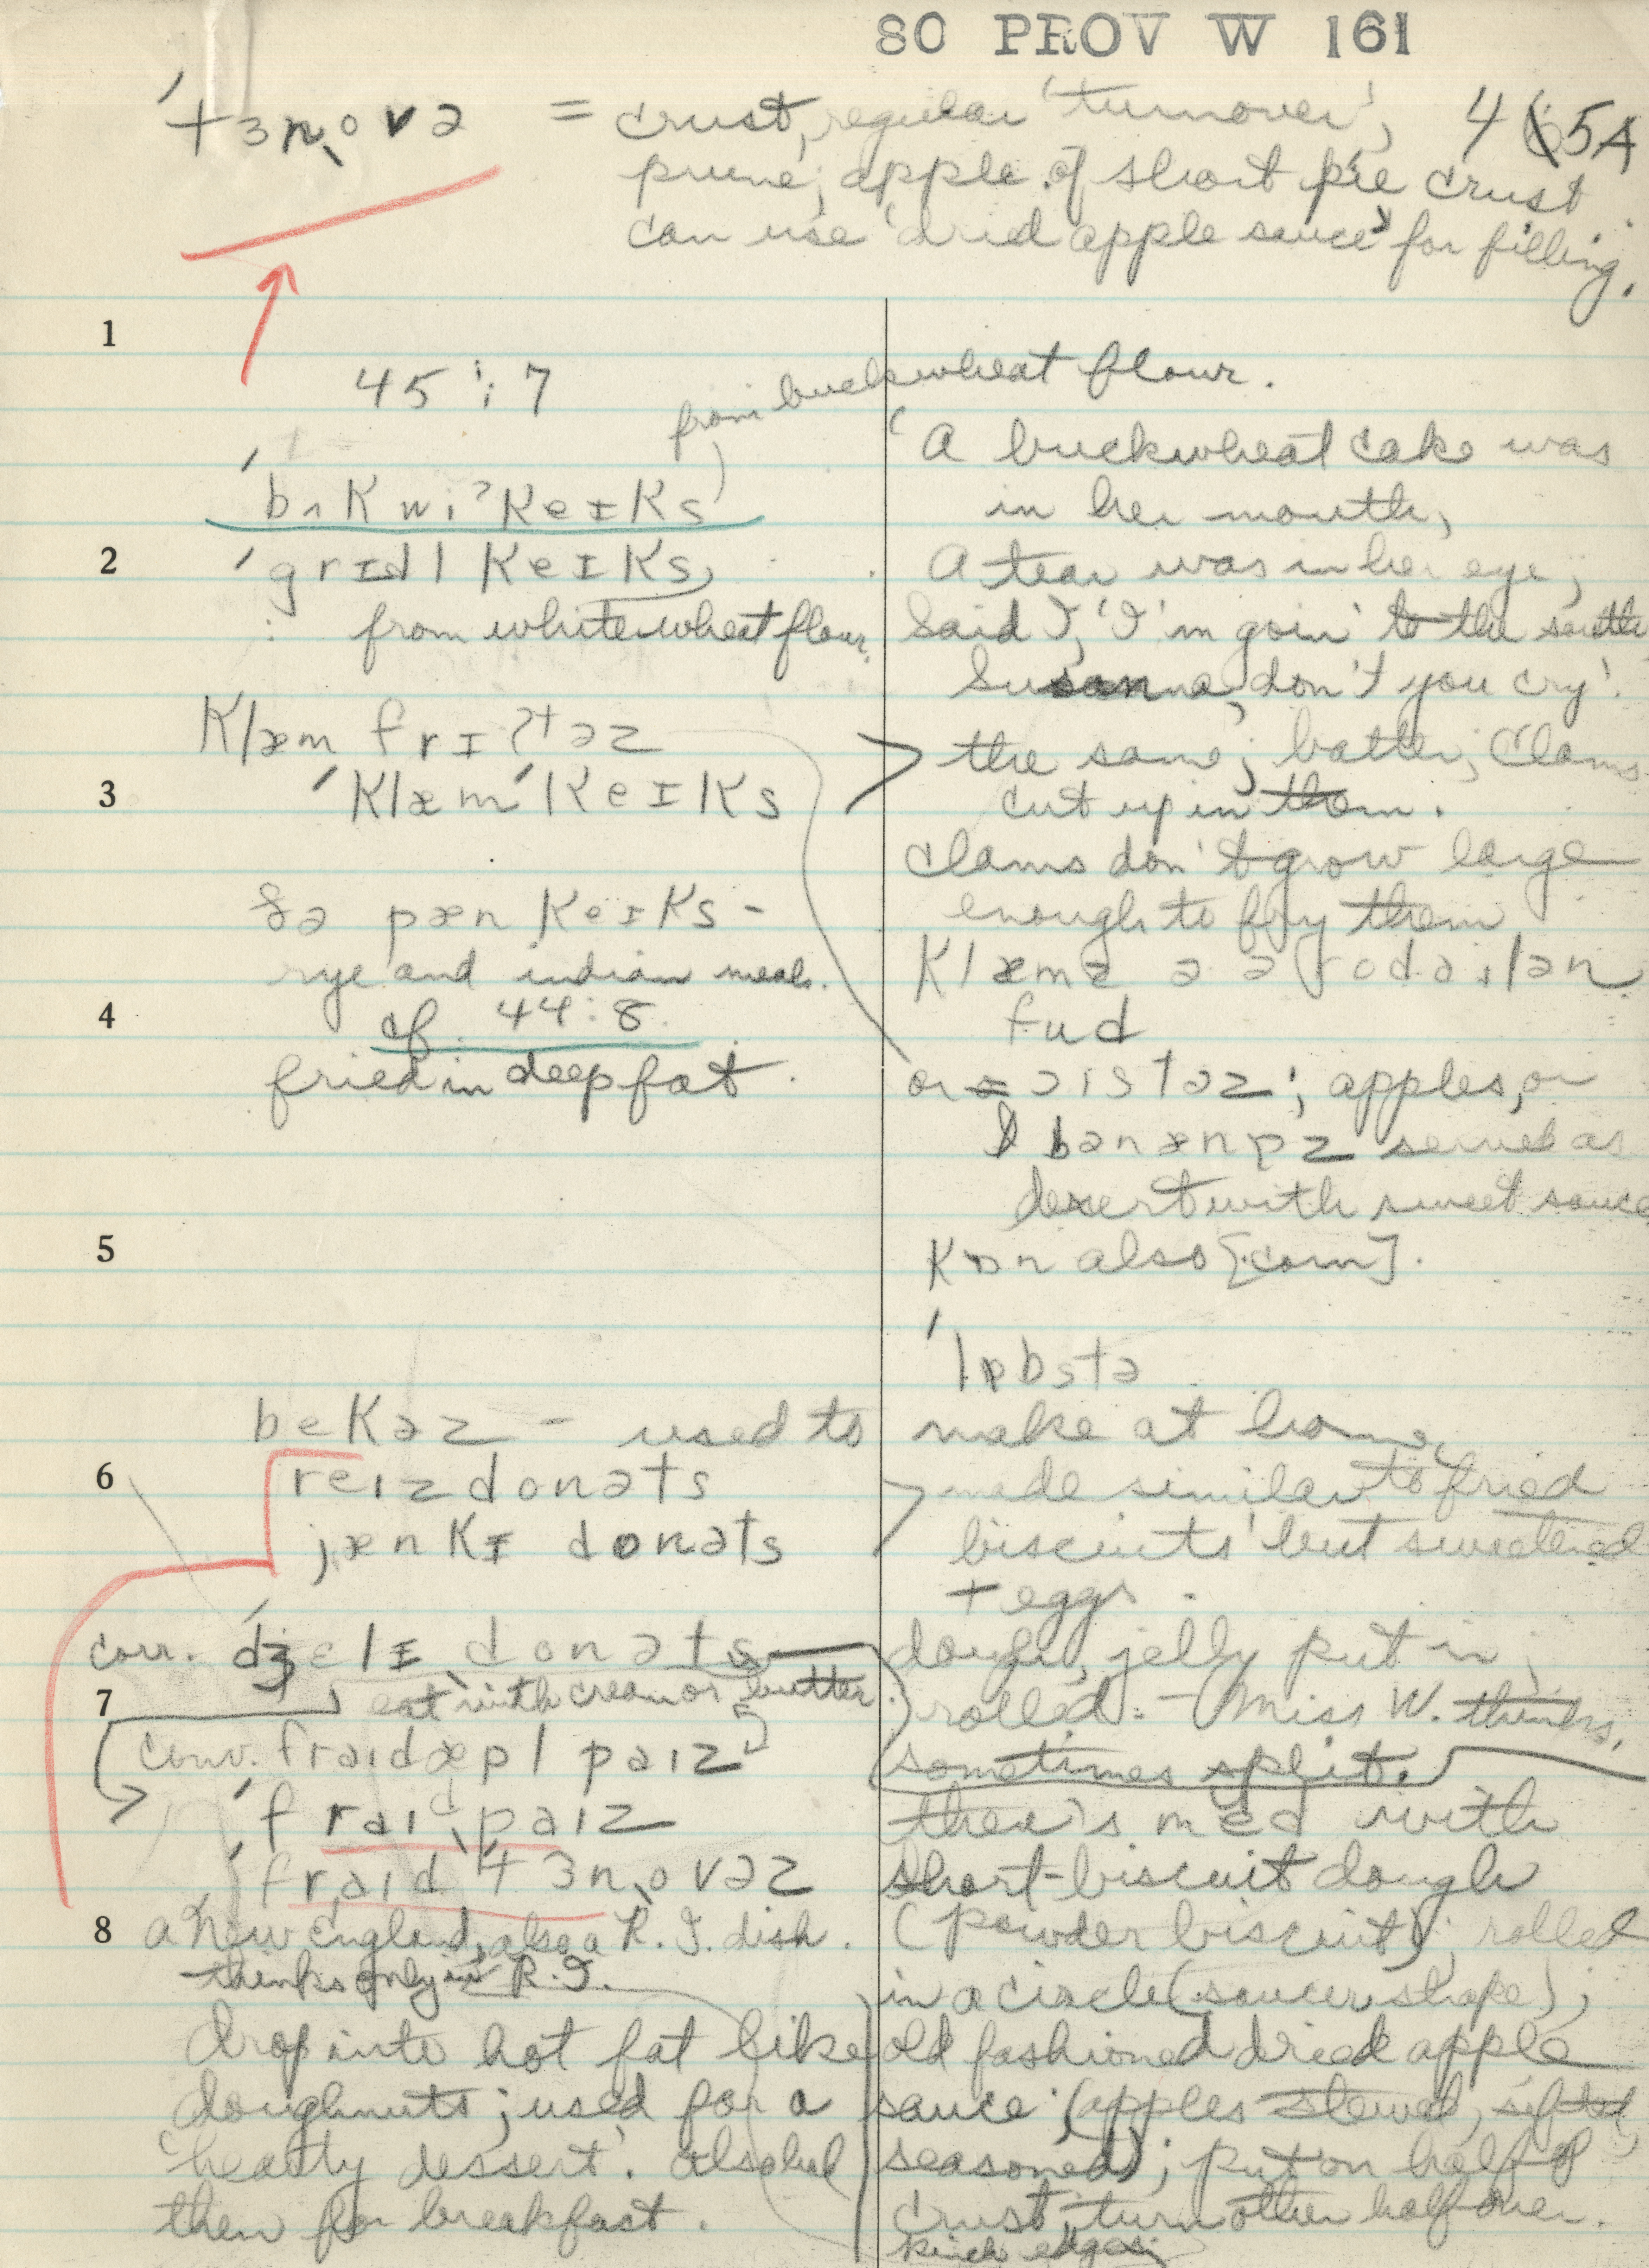 80 PROV W 161
'tɜn,ovə = crust, regular 'turnover',
4 5A
prune, apple of short pie crust
can use 'dried apple sauce' for filling.
1
45:7
from buckwheat flour.
'bʌkwiʔkeɪks
'A buckwheat cake was
in her mouth,
2
'grɪdl keɪks,
A tear was in her eye,
from white wheat flour.
Said I, 'I'm goin' to the south
Susanna, don't you cry'.
klæm frɪʔtəz
the same; batter; clams
3
'klæm 'keɪks
cut up in them.
clams don't grow large
enough to fry them
pæn keɪks -
rye and indian meal.
klæmz
fud
4
cf. 44:8
fried in deep fat.
or ɔɪstəz; apples, or
served as
desert with sweet sauce
5
kɒn also [corn].
'lɒbstə
bekəz - used to make at home
6
reɪz donəts
made similar to 'fried
jænkɪ donəts
biscuits' but sweetened
+ eggs.
corr. 'dʒelɪ donəts
dough, jelly put in;
7
eat with cream or butter
rolled. - Miss W. thinks,
conv. fraɪdæpl paɪz
sometimes split.
'fraɪd,paɪz
with
'fraɪd 'tɜn,ovəz
short-biscuit dough
8
a New England, also a R. I. dish.
(powder biscuit); rolled
thinks only in R. I.
in a circle (saucer shape);
drop into hot fat like
old fashioned dried apple
doughnuts; used for a
sauce (apples stewed, sifted,
'hearty dessert'. also had
seasoned); put on half of
them for breakfast.
crust, turn other half over.
edges